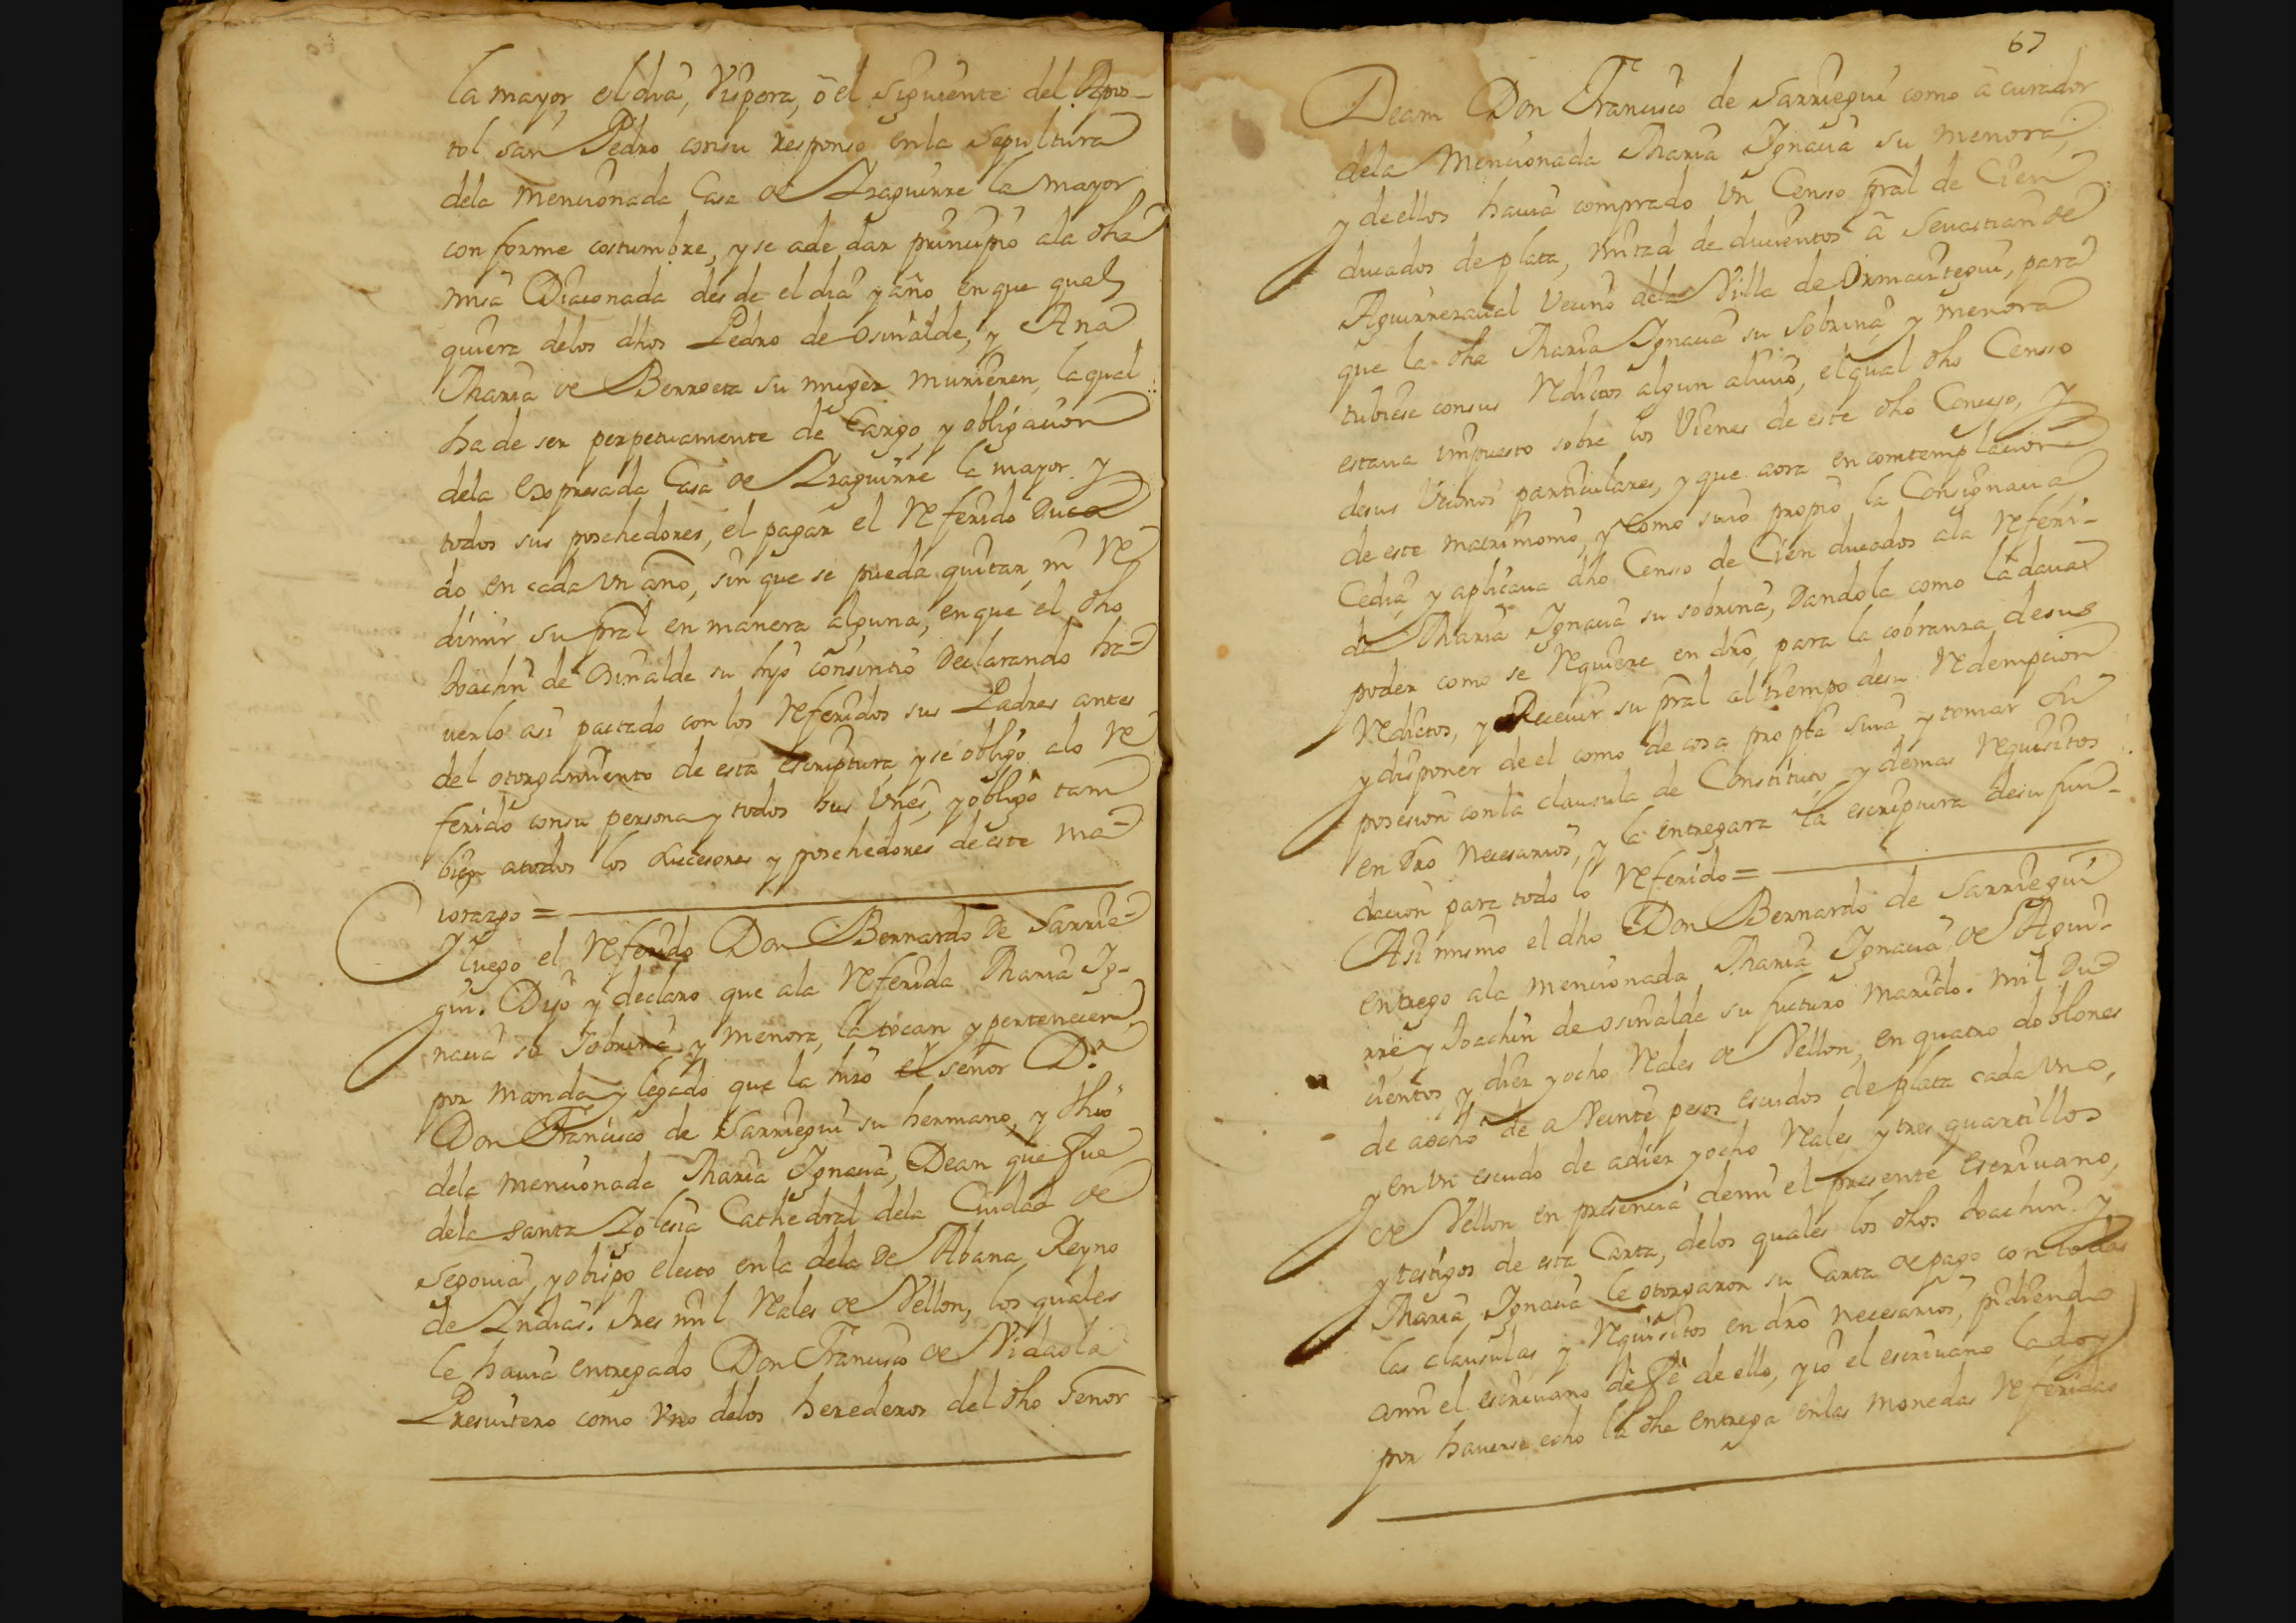 la mayor, el dia, Vispera, ô el siguiente del Apos-
tol san Pedro consu responso enla sepultura
dela mencionada Casa de Yraguirre la mayor
conforme costumbre, y se ade dar principio ala dha
misa Diaconada desde el dia y año en que qual
quiera delos dhos Pedro de osinalde, y Ana
Maria de Berroeta su muger murieren, la qual
ha de ser perpetuamente de Cargo, y obligacion
dela expresada Casa de Yraguirre la mayor y
todos sus poschedores, el pagar el Referido Duca
do en cada Vn año, sin que se pueda quitar, ni Re
dimir su pral en manera alguna, en que el dho
Joachin de Osinalde su hijo consintió Declarando ha-
uerlo asi pactado con los Referidos sus Padres antes
del otorgamiento de esta escriptura, y se obligó alo Re
ferido consu persona y todos sus Vnes, y obligó tam
bien atodos los sucesores y poschedores de este ma-
iorazgo =
Y luego el Referido Don Bernardo de Sarrie-
gui. Dijo y declaro que ala Referida Maria Ig-
nacia su sobrina y menora, la tocan y pertenecen
por manda y legado que la hizo el señor Dr.
Don Francisco de Sarriegui su hermano, y thio
dela mencionada Maria Ignacia, Dean que fue
dela santa Yglesia Cathedral dela Ciudad de
Segouia, y obispo electo en la dela de Abana Reyno
de Yndias. Tres mil Reales de Vellon, los quales
le hauia entregado Don Francisco de Vidaola
Presuitero como Vno delos herederos del dho Señor
67
Deam Don Francisco de Sarriegui como â curador
dela Mencionada Maria Ignacia su menora,
y de ellos hauia comprado Vn Censo pral de Cien
ducados de plata, mitad de ducientos â Seuastian de
Aguirrezaual Vecino dela Villa de Ormaiztegui, para
que la dha Maria Ignacia su Sobrina, y menora
tubiese consus Redictos algun aliuio, el qual dho Censso
estaua impuesto sobre los Vienes de este dho Concejo, y
desus Vecinos particulares, y que aora en comtemplacion
de este matrimonio, y Como suio propio la Consignaua
Cedia, y aplicaua dho Censo de Cien ducados ala Referi-
da Maria Ignacia su sobrina, Dandola como la daua
poder como se Requiere en dro, para la cobranza desus
Redictos, y Receuir su pral al tiempo desu Redempcion
y disponer de el como de cosa propia suia, y tomar su
posesion con la clausula de Constituto, y demas Requisitos
en dro Necesarios, y la entregara la escriptura desu fun-
dacion para todo lo Referido =
Asi mismo el dho Don Bernardo de Sarriegui
entrego ala mencionada Maria Ignacia de Aguir-
rre, y Joachin de osinalde su futuro marido. Mil Du-
cientos y diez yocho Reales de Vellon, en quatro doblones
de aocho de a Veinte pesos escudos de plata cada Vno,
y en Vn escudo de adiez yocho Reales, y tres quartillos
de Vellon en presencia demi el presente escriuano,
y testigos de esta Carta, delos quales los dhos Joachin y
Maria Ignacia le otorgaron su Carta de pago con todas
las clausulas y Requisitos en dro necesarios, pidiendo
ami el escriuano de fè de ello, y io el escriuano la doy
por hauerse echo la dha entrega enlas monedas Referidas